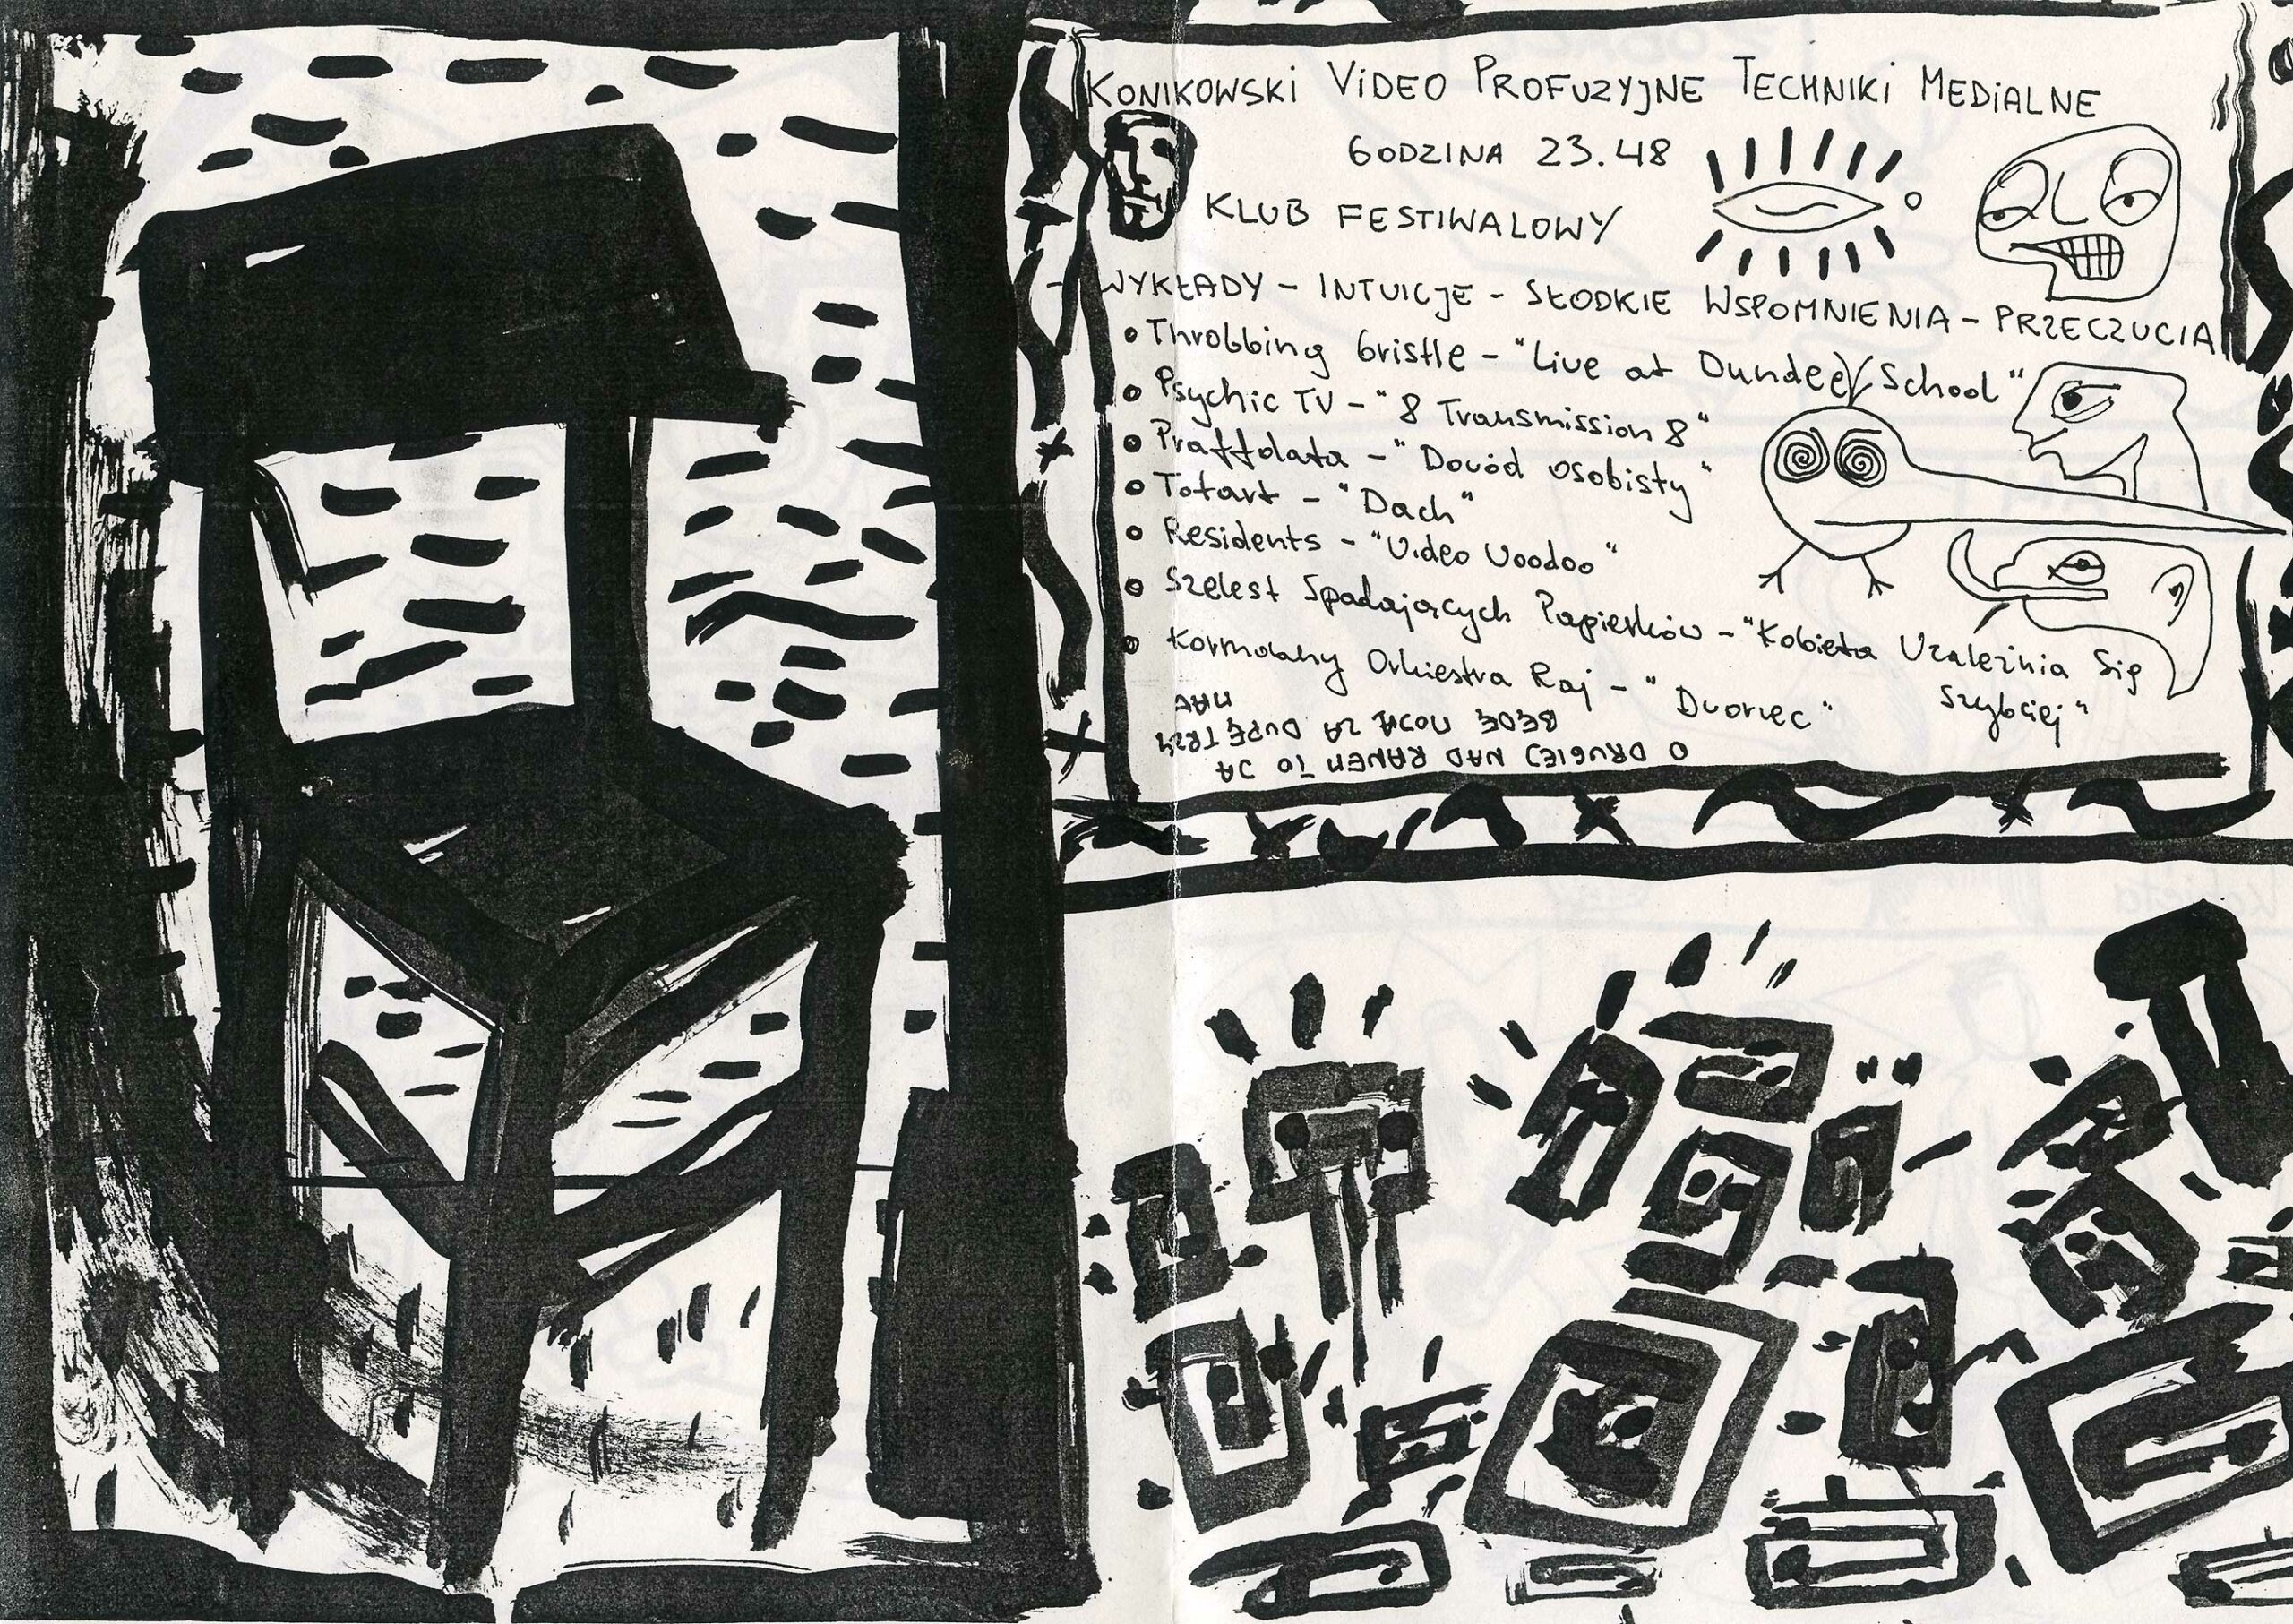 KONIKOWSKI VIDEO PROFUZYJNE TECHNIKI MEDIALNE
GODZINA 23.48
KLUB FESTIWALOWY
WYKŁADY - INTUICJE - SŁODKIE WSPOMNIENIA - PRZECZUCIA
Throbbing Gristle - "Live at Dundee School"
Psychic TV - "8 Transmission 8"
Praffdata - "Dowód osobisty"
Totart - "Dach"
Residents - "Video Voodoo"
Szelest Spadających Papierków - "Kobieta Uzależnia Się
szybciej"
Kormorany Orkiestra Raj - "Dworzec"
O DRUGIEJ NAD RANEM TO JA
BĘDĘ NOCĄ ZA DUPĘ TRZY
MAŁ